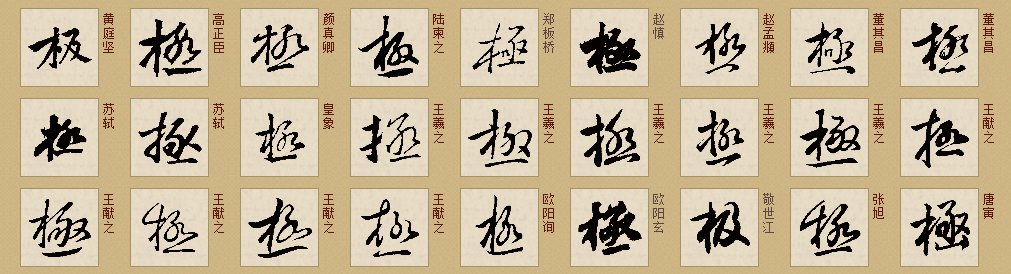 极 黄庭坚
極 高正臣
極 颜真卿
極 陆柬之
極 郑板桥
極 赵慎
極 赵孟頫
極 董其昌
極 董其昌
極 苏轼
極 苏轼
極 皇象
極 王羲之
極 王羲之
極 王羲之
極 王羲之
極 王羲之
極 王献之
極 王献之
極 王献之
極 王献之
極 王献之
極 欧阳询
極 欧阳玄
极 敬世江
極 张旭
極 唐寅